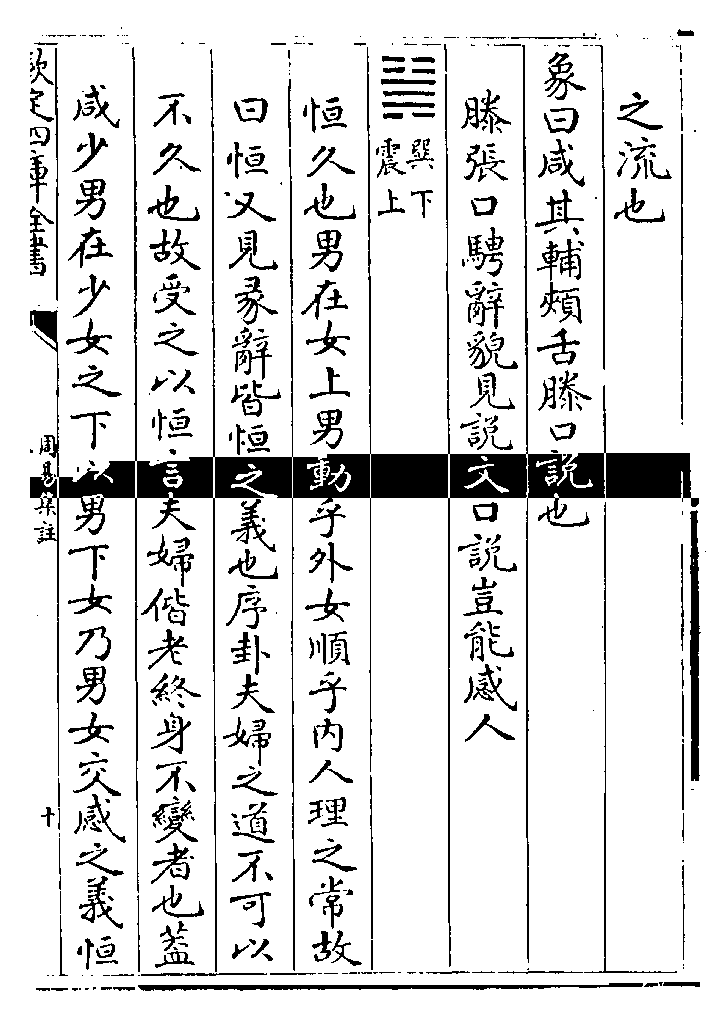 之流也
象曰咸其輔頰舌滕口說也
滕張口騁辭貌見說文口說豈能感人
䷟
巽下
震上
恒久也男在女上男動乎外女順乎内人理之常故
曰恒又見彖辭皆恒之義也序卦夫婦之道不可以
不久也故受之以恒言夫婦偕老終身不變者也蓋
咸少男在少女之下以男下女乃男女交感之義恒
欽定四庫全書
周易集註
十